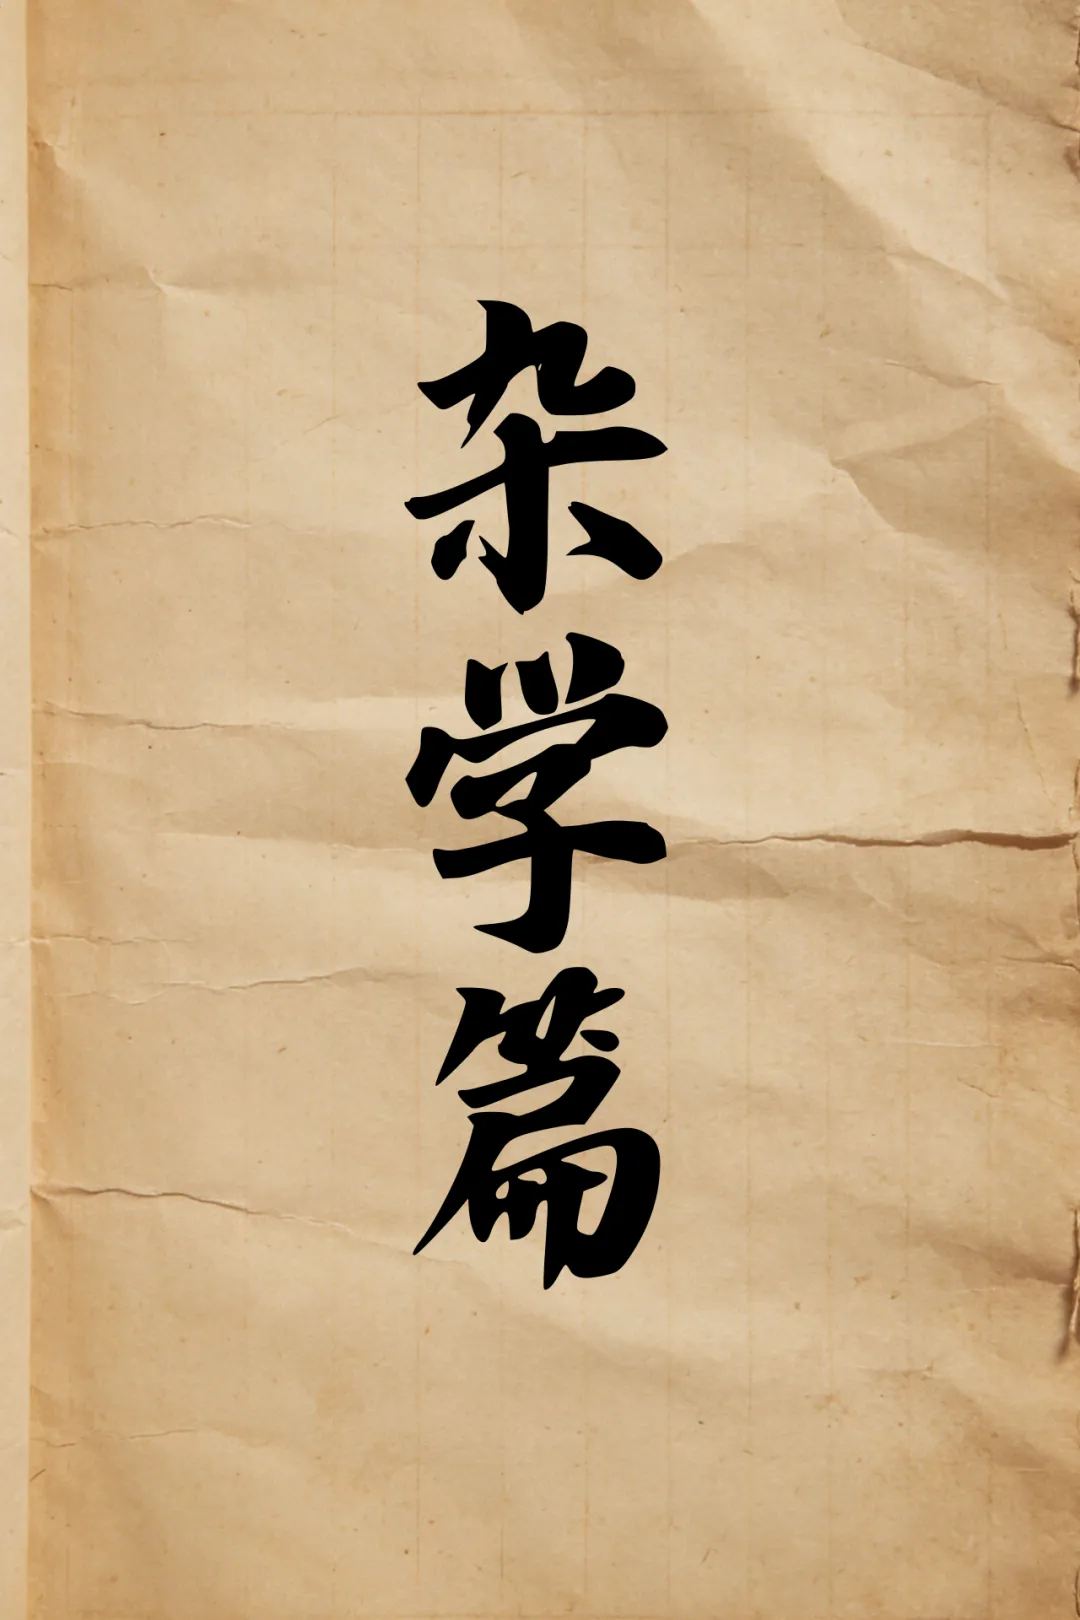 杂学篇